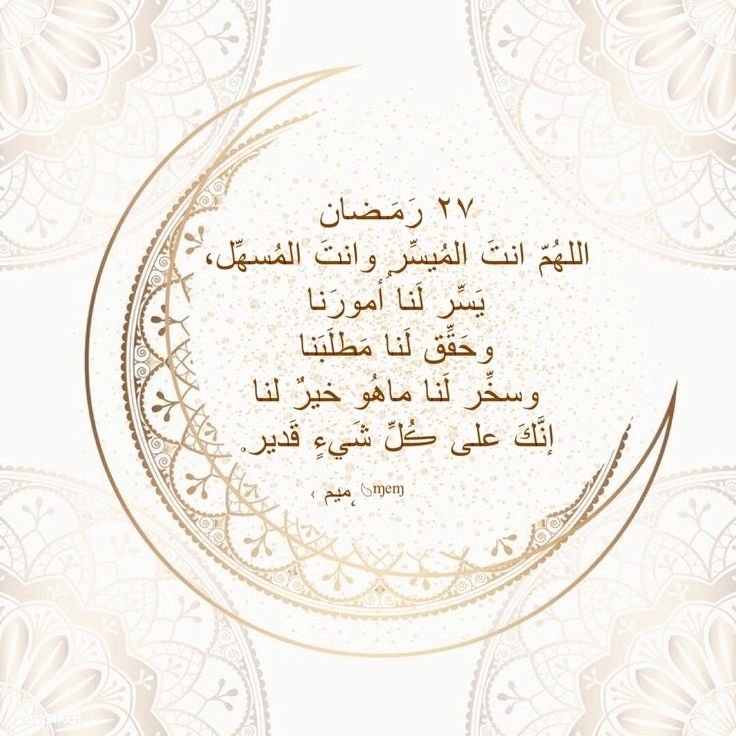 ٢٧ رَمَـضان
اللهُمّ انتَ المُيسِّر وانتَ المُسهِّل،
يَسِّر لَنا أُمورَنا
وحَقِّق لَنا مَطلَبَنا
وسخِّر لَنا ماهُو خيرٌ لنا
إنَّكَ على كُلِّ شَيءٍ قَدير
ميم ɱeɱ
rawpixel